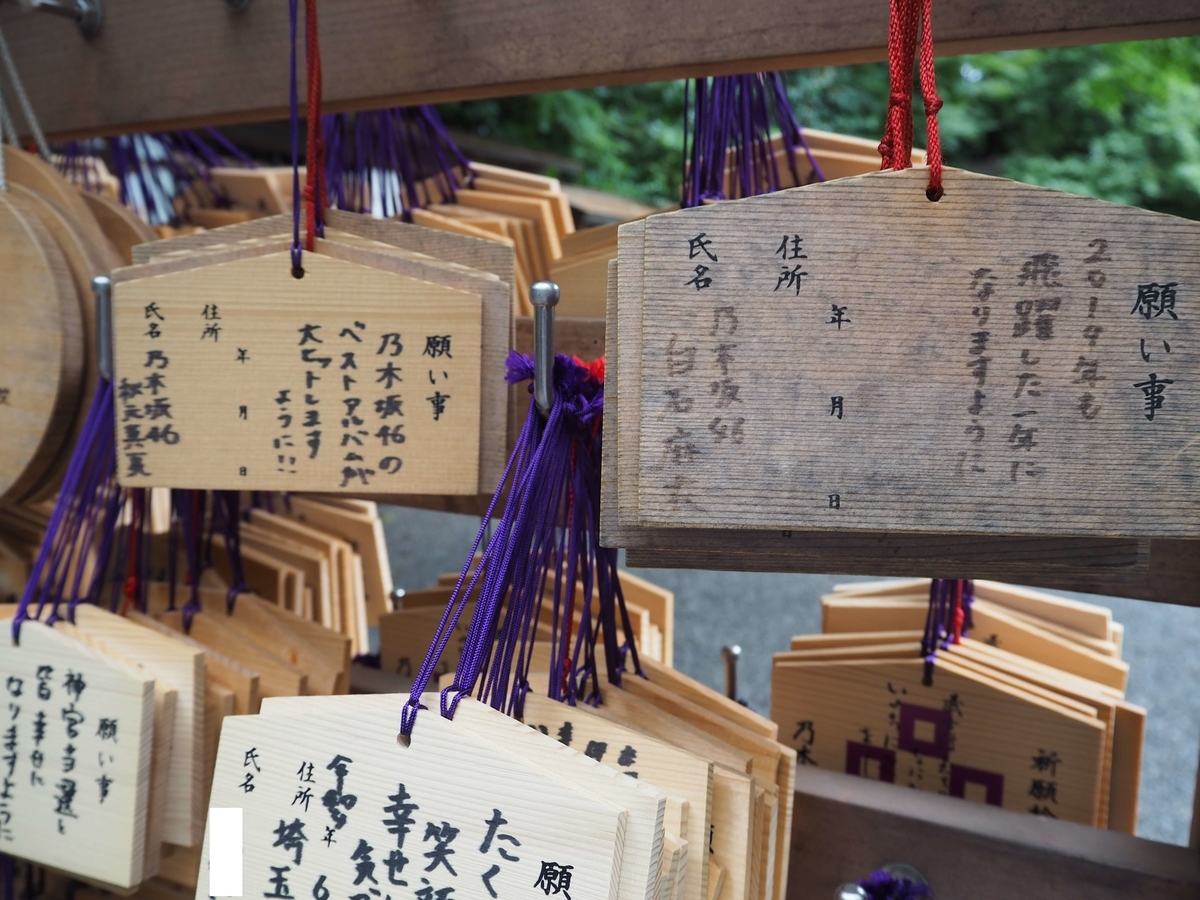 願い事
2019年も
飛躍した一年に
なりますように
年 月 日
住所
氏名
乃木坂46
白石麻衣
願い事
乃木坂46の
ベストアルバムが
大ヒットします
ように!!
年 月 日
住所
氏名
乃木坂46
秋元真夏
願い事
神宮当選と
皆幸せに
なりますように
願
たく
笑顔
幸せ
年 6
住所
埼玉
氏名
祈願絵
乃木